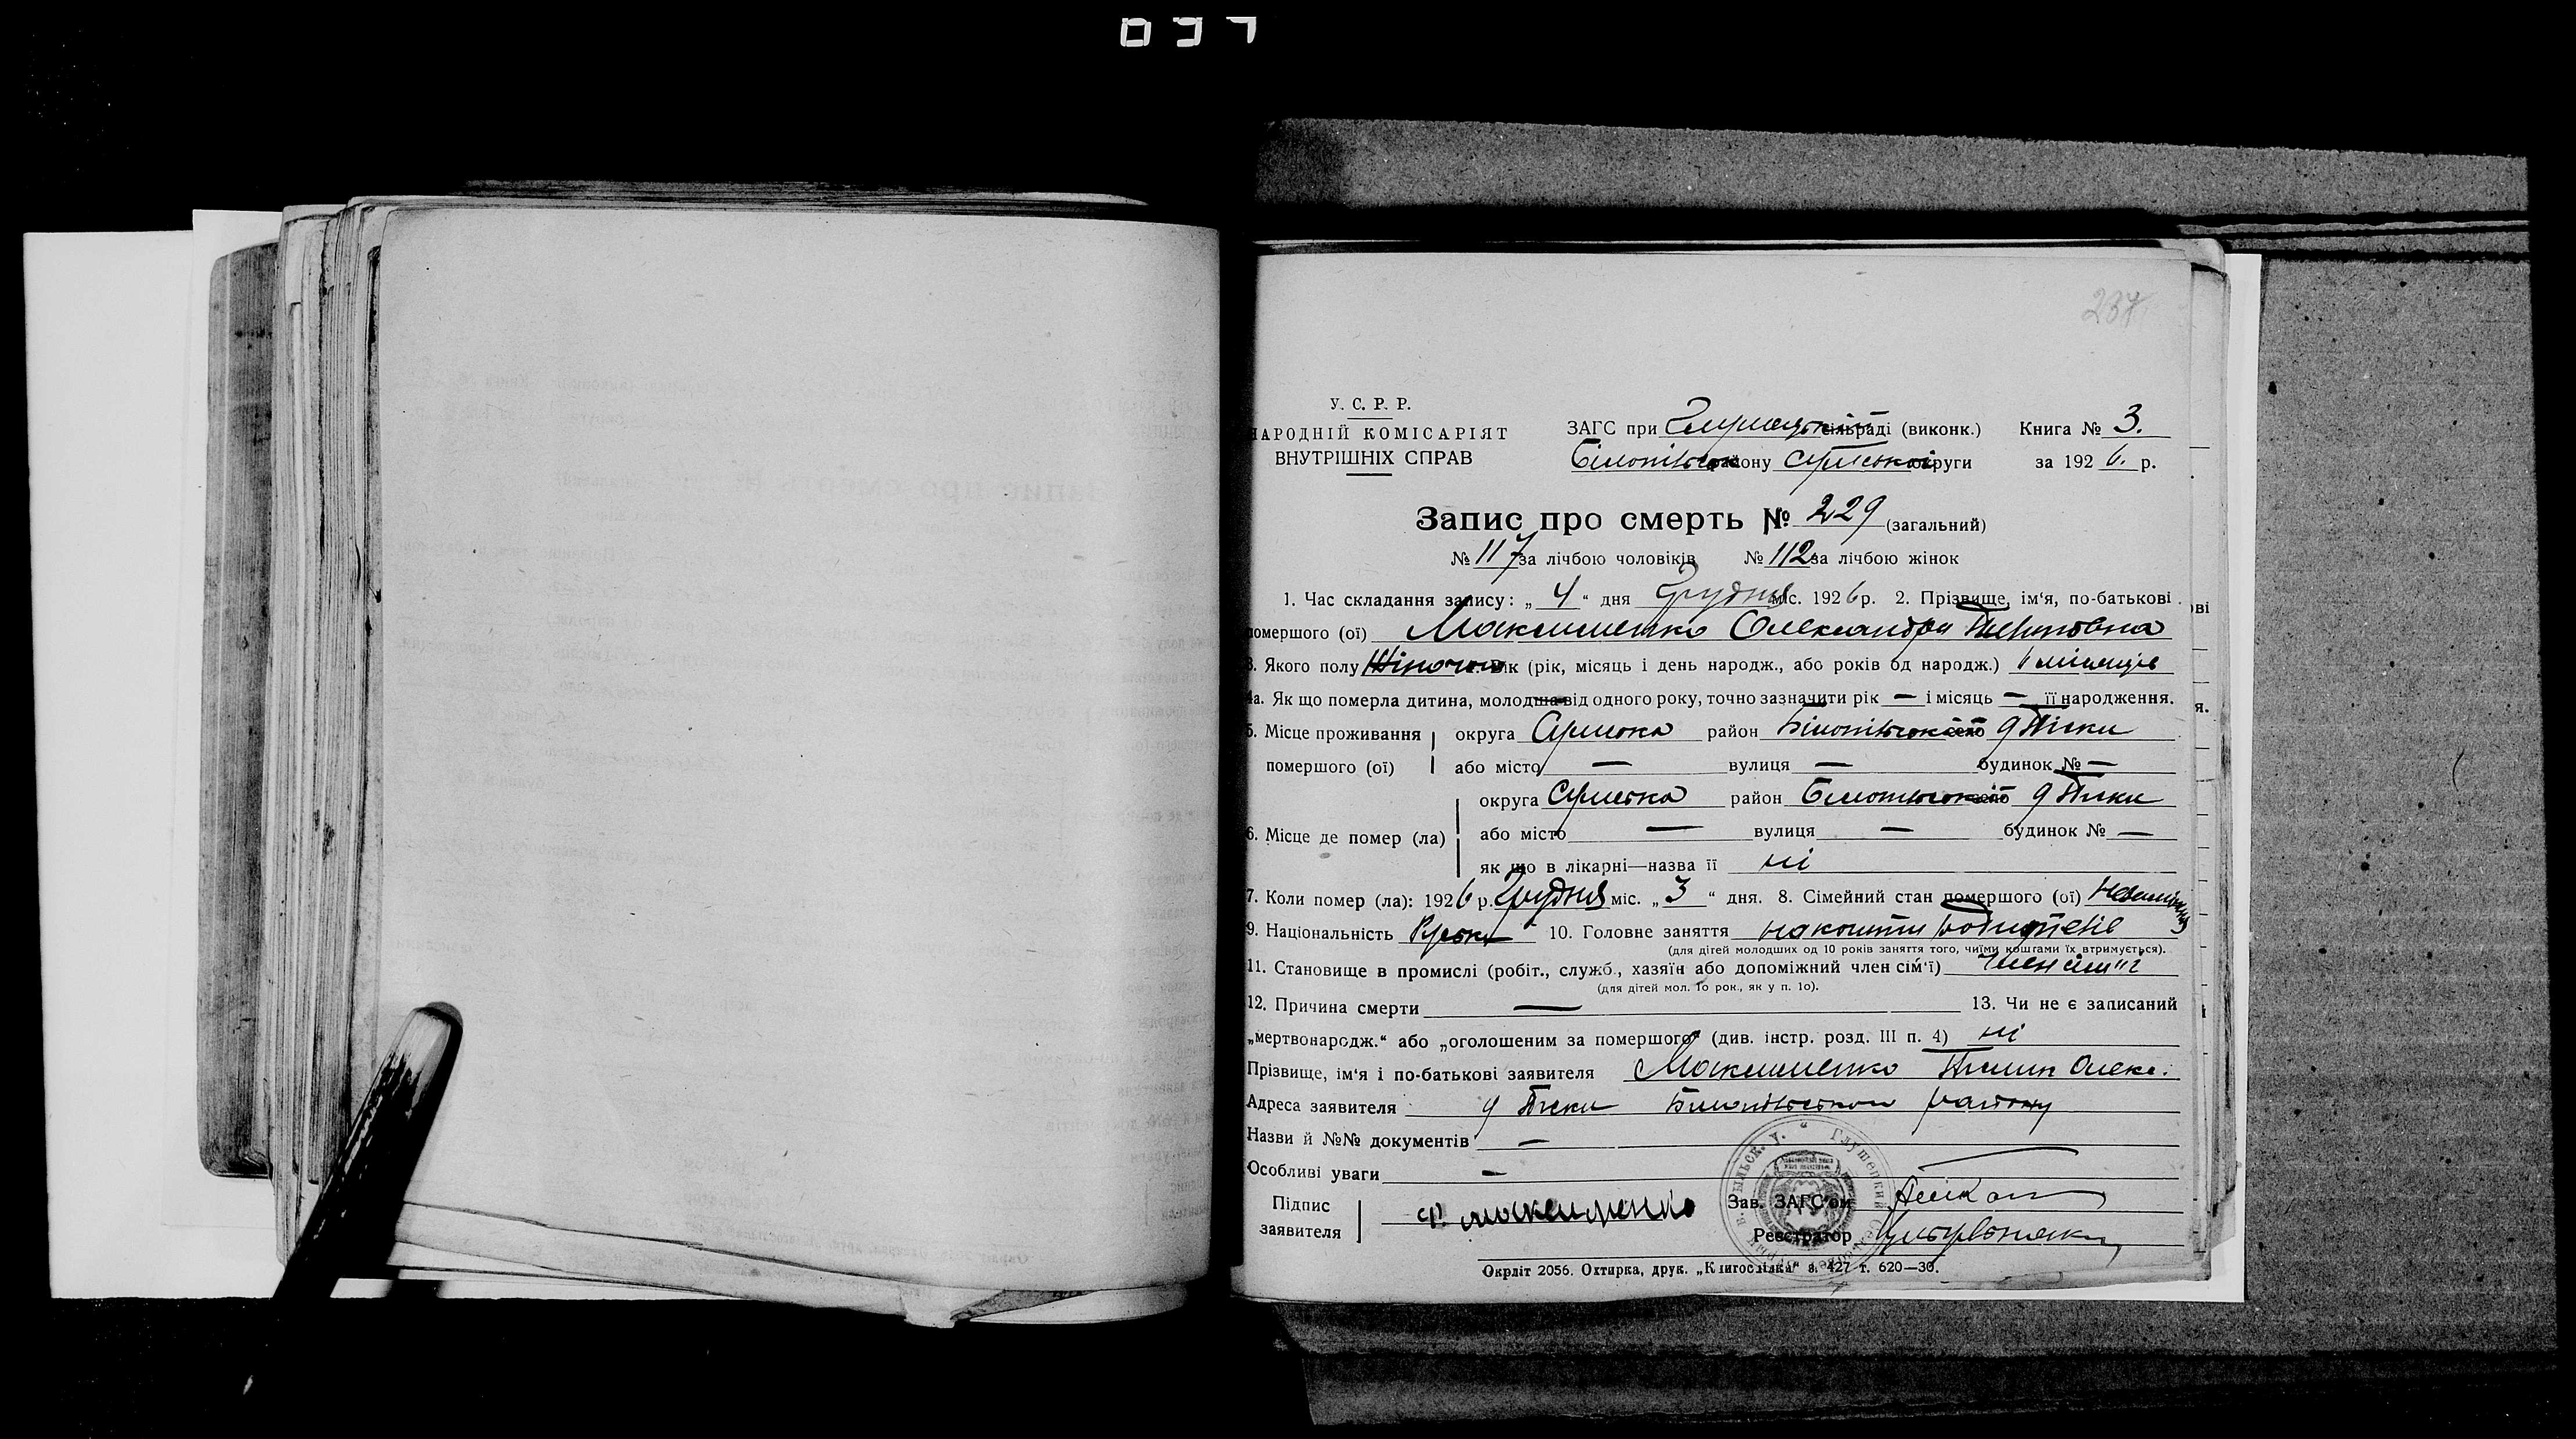 237
У. С. Р. Р.
НАРОДНІЙ КОМІСАРІЯТ
ВНУТРІШНІХ СПРАВ
ЗАГС при сільраді (виконк.) Книга № 3.
Білопільськ району Сумської округи за 1926. р.
Запис про смерть № 229 (загальний)
№ 117 за лічбою чоловіків № 112 за лічбою жінок
1. Час складання запису: „ 4 “ дня Грудня міс. 1926 р. 2. Прізвище, ім‘я, по-батькові
помершого (ої) Максименко Олександра
3. Якого полу Жіночого Вік (рік, місяць і день народж., або років од народж.) місяців
4а. Як що померла дитина, молодша від одного року, точно зазначити рік — і місяць — її народження.
5. Місце проживання округа Сумська район Білопільськ село Піски
помершого (ої) або місто — вулиця — будинок № —
округа Сумська район Білопільськ село Піски
6. Місце де помер (ла) або місто — вулиця — будинок № —
як що в лікарні—назва її ні
7. Коли помер (ла): 1926 р. Грудня міс. „ 3 “ дня. 8. Сімейний стан помершого (ої)
9. Національність Руська 10. Головне заняття на кошти родителів
(для дітей молодших од 10 років заняття того, чиїми коштами їх втримується).
11. Становище в промислі (робіт., служб., хазяїн або допоміжний член сім‘ї) член сім"ї
(для дітей мол. 1о рок., як у п. 1о).
12. Причина смерти — 13. Чи не є записаний
„мертвонародж.“ або „оголошеним за помершого“ (див. інстр. розд. III п. 4) ні
Прізвище, ім‘я і по-батькові заявителя Максименко Олекс.
Адреса заявителя Піски Білопільського району
Назви й №№ документів —
Особливі уваги —
Підпис
заявителя Максименко
Зав. ЗАГС‘ом
Реєстратор
Окрліт 2056. Охтирка, друк. „Книгоспілка“ з. 427 т. 620—30.